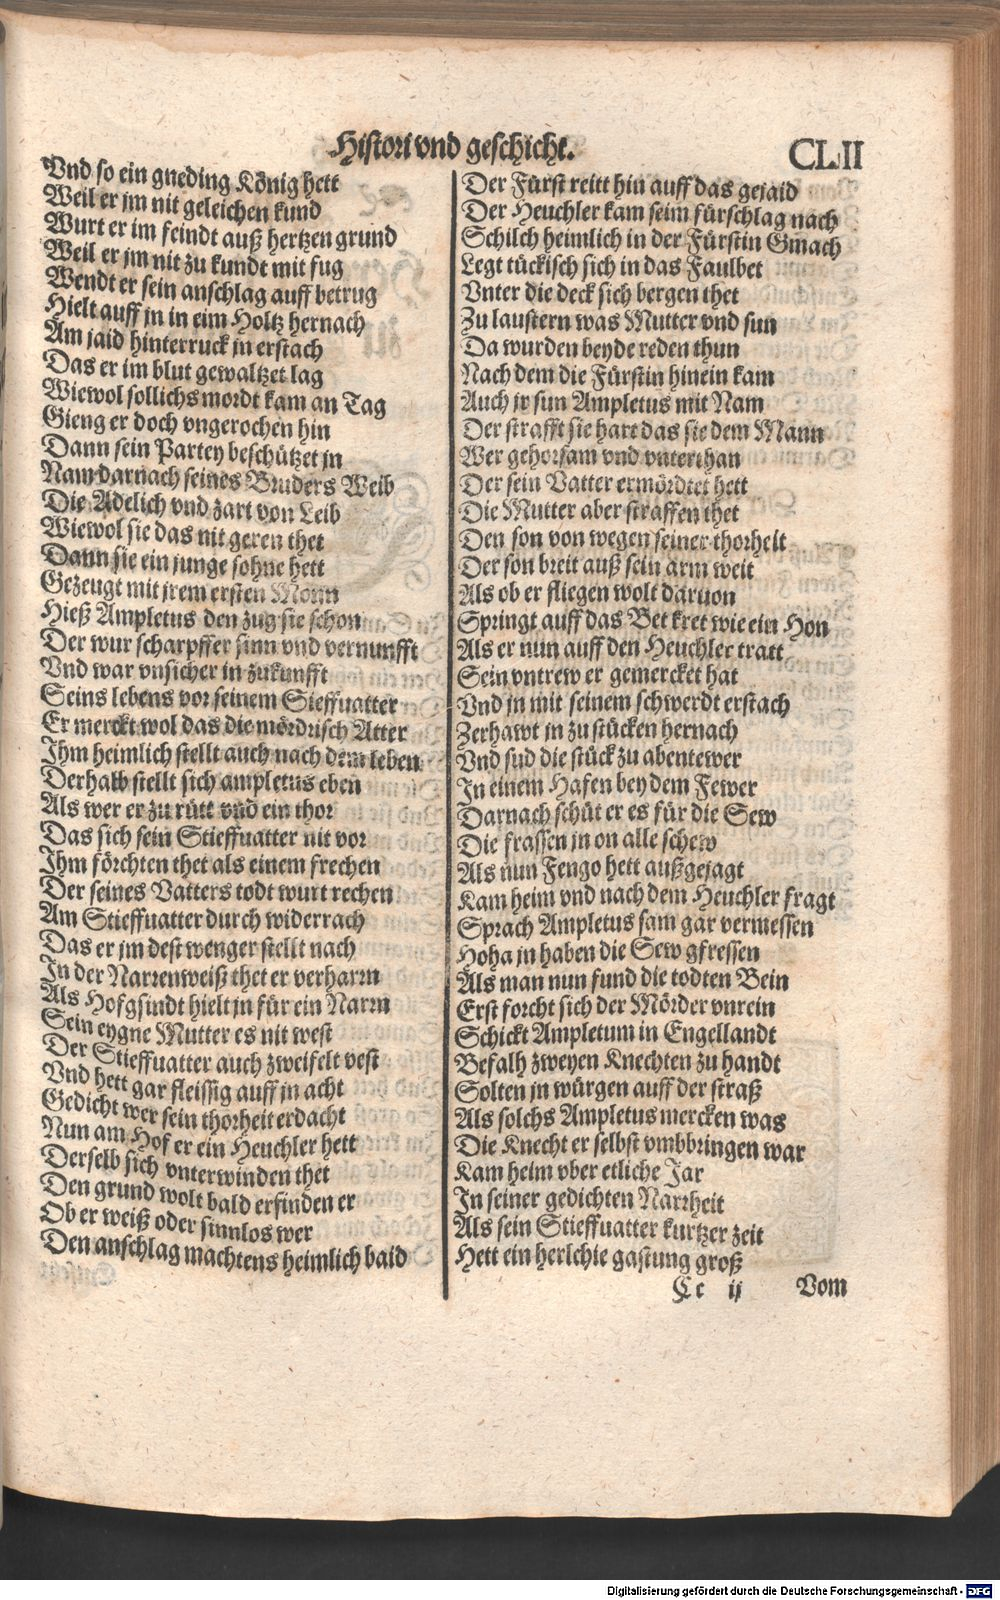 Histori vnd geschicht.
CLII
Vnd so ein gneding König hett
Weil er jm nit geleichen kund
Wurt er im feindt auß hertzen grund
Weil er jm nit zu kundt mit fug
Wendt er sein anschlag auff betrug
Hielt auff jn in eim Holtz hernach
Am jaid hinterruck jn erstach
Das er im blut gewaltzet lag
Wiewol sollichs mordt kam an Tag
Gieng er doch vngerochen hin
Dann sein Partey beschützet jn
Nam darnach seines Bruders Weib
Die Adelich vnd zart von Leib
Wiewol sie das nit geren thet
Dann sie ein junge sohne hett
Gezeugt mit jrem ersten Monn
Hieß Ampletus den zug sie schon
Der wur scharpffer sinn vnd vernunfft
Vnd war vnsicher in zukunfft
Seins lebens vor seinem Sieffuatter
Er merckt wol das die mördrisch Atter
Ihm heimlich stellt auch nach dem leben
Derhalb stellt sich ampletus eben
Als wer er zu rütt vnd ein thor
Das sich sein Stieffuatter nit vor
Ihm förchten thet als einem frechen
Der seines Vatters todt wurt rechen
Am Stieffuatter durch widerrach
Das er jm dest wenger stellt nach
In der Narrenweiß thet er verharrn
Als Hofgsindt hielt jn für ein Narrn
Sein eygne Mutter es nit west
Der Stieffuatter auch zweifelt vest
Vnd hett gar fleissig auff jn acht
Gedicht wer sein thorheit erdacht
Nun am Hof er ein Heuchler hett
Derselb sich vnterwinden thet
Den grund wolt bald erfinden er
Ob er weiß oder sinnlos wer
Den anschlag machtens heimlich baid
Der Fürst reitt hin auff das gejaid
Der Heuchler kam seim fürschlag nach
Schilch heimlich in der Fürstin Gmach
Legt tückisch sich in das Faulbet
Vnter die deck sich bergen thet
Zu laustern was Mutter vnd sun
Da wurden beyde reden thun
Nach dem die Fürstin hinein kam
Auch jr sun Ampletus mit Nam
Der strafft sie hart das sie dem Mann
Wer gehorsam vnd vnterthan
Der sein Vatter ermördtet hett
Die Mutter aber straffen thet
Den son von wegen seiner thorheit
Der son breit auß sein arm weit
Als ob er fliegen wolt daruon
Springt auff das Bet kret wie ein Hon
Als er nun auff den Heuchler tratt
Sein vntrew er gemercket hat
Vnd jn mit seinem schwerdt erstach
Zerhawt jn zu stücken hernach
Vnd sud die stück zu abentewer
In einem Hafen bey dem Fewer
Darnach schüt er es für die Sew
Die frassen jn on alle schew
Als nun Fengo hett außgejagt
Kam heim vnd nach dem Heuchler fragt
Sprach Ampletus sam gar vermessen
Hoha jn haben die Sew gfressen
Als man nun fund die todten Bein
Erst forcht sich der Mörder vnrein
Schickt Ampletum in Engellandt
Befalh zweyen Knechten zu handt
Solten jn würgen auff der straß
Als solchs Ampletus mercken was
Die Knecht er selbst vmbbringen war
Kam heim vber etliche Jar
In seiner gedichten Narrheit
Als sein Stieffuatter kurtzer zeit
Hett ein herlchie gastung groß
Cc ij
Vom
Digitalisierung gefördert durch die Deutsche Forschungsgemeinschaft - DFG